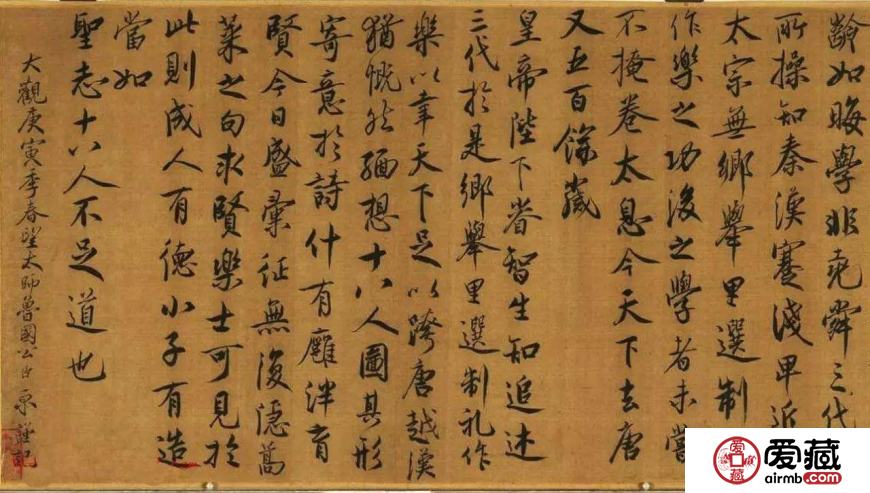 齡如晦學非堯舜三代
所操知秦漢蹇淺卑近
太宗無鄉舉里選制
作樂之功後之學者未嘗
不掩卷太息今天下去唐
又五百餘歲
皇帝陛下睿智生知追述
三代於是鄉舉里選制礼作
樂以幸天下足以跨唐越漢
猶慨然緬想十八人圖其形
寄意於詩什有廱泮育
賢今日盛彙征無復隱蒿
萊之句求賢樂士可見於
此則成人有德小子有造
當如
聖志十八人不足道也
大觀庚寅季春望太師魯國公臣京謹記
爱藏
airmb.com